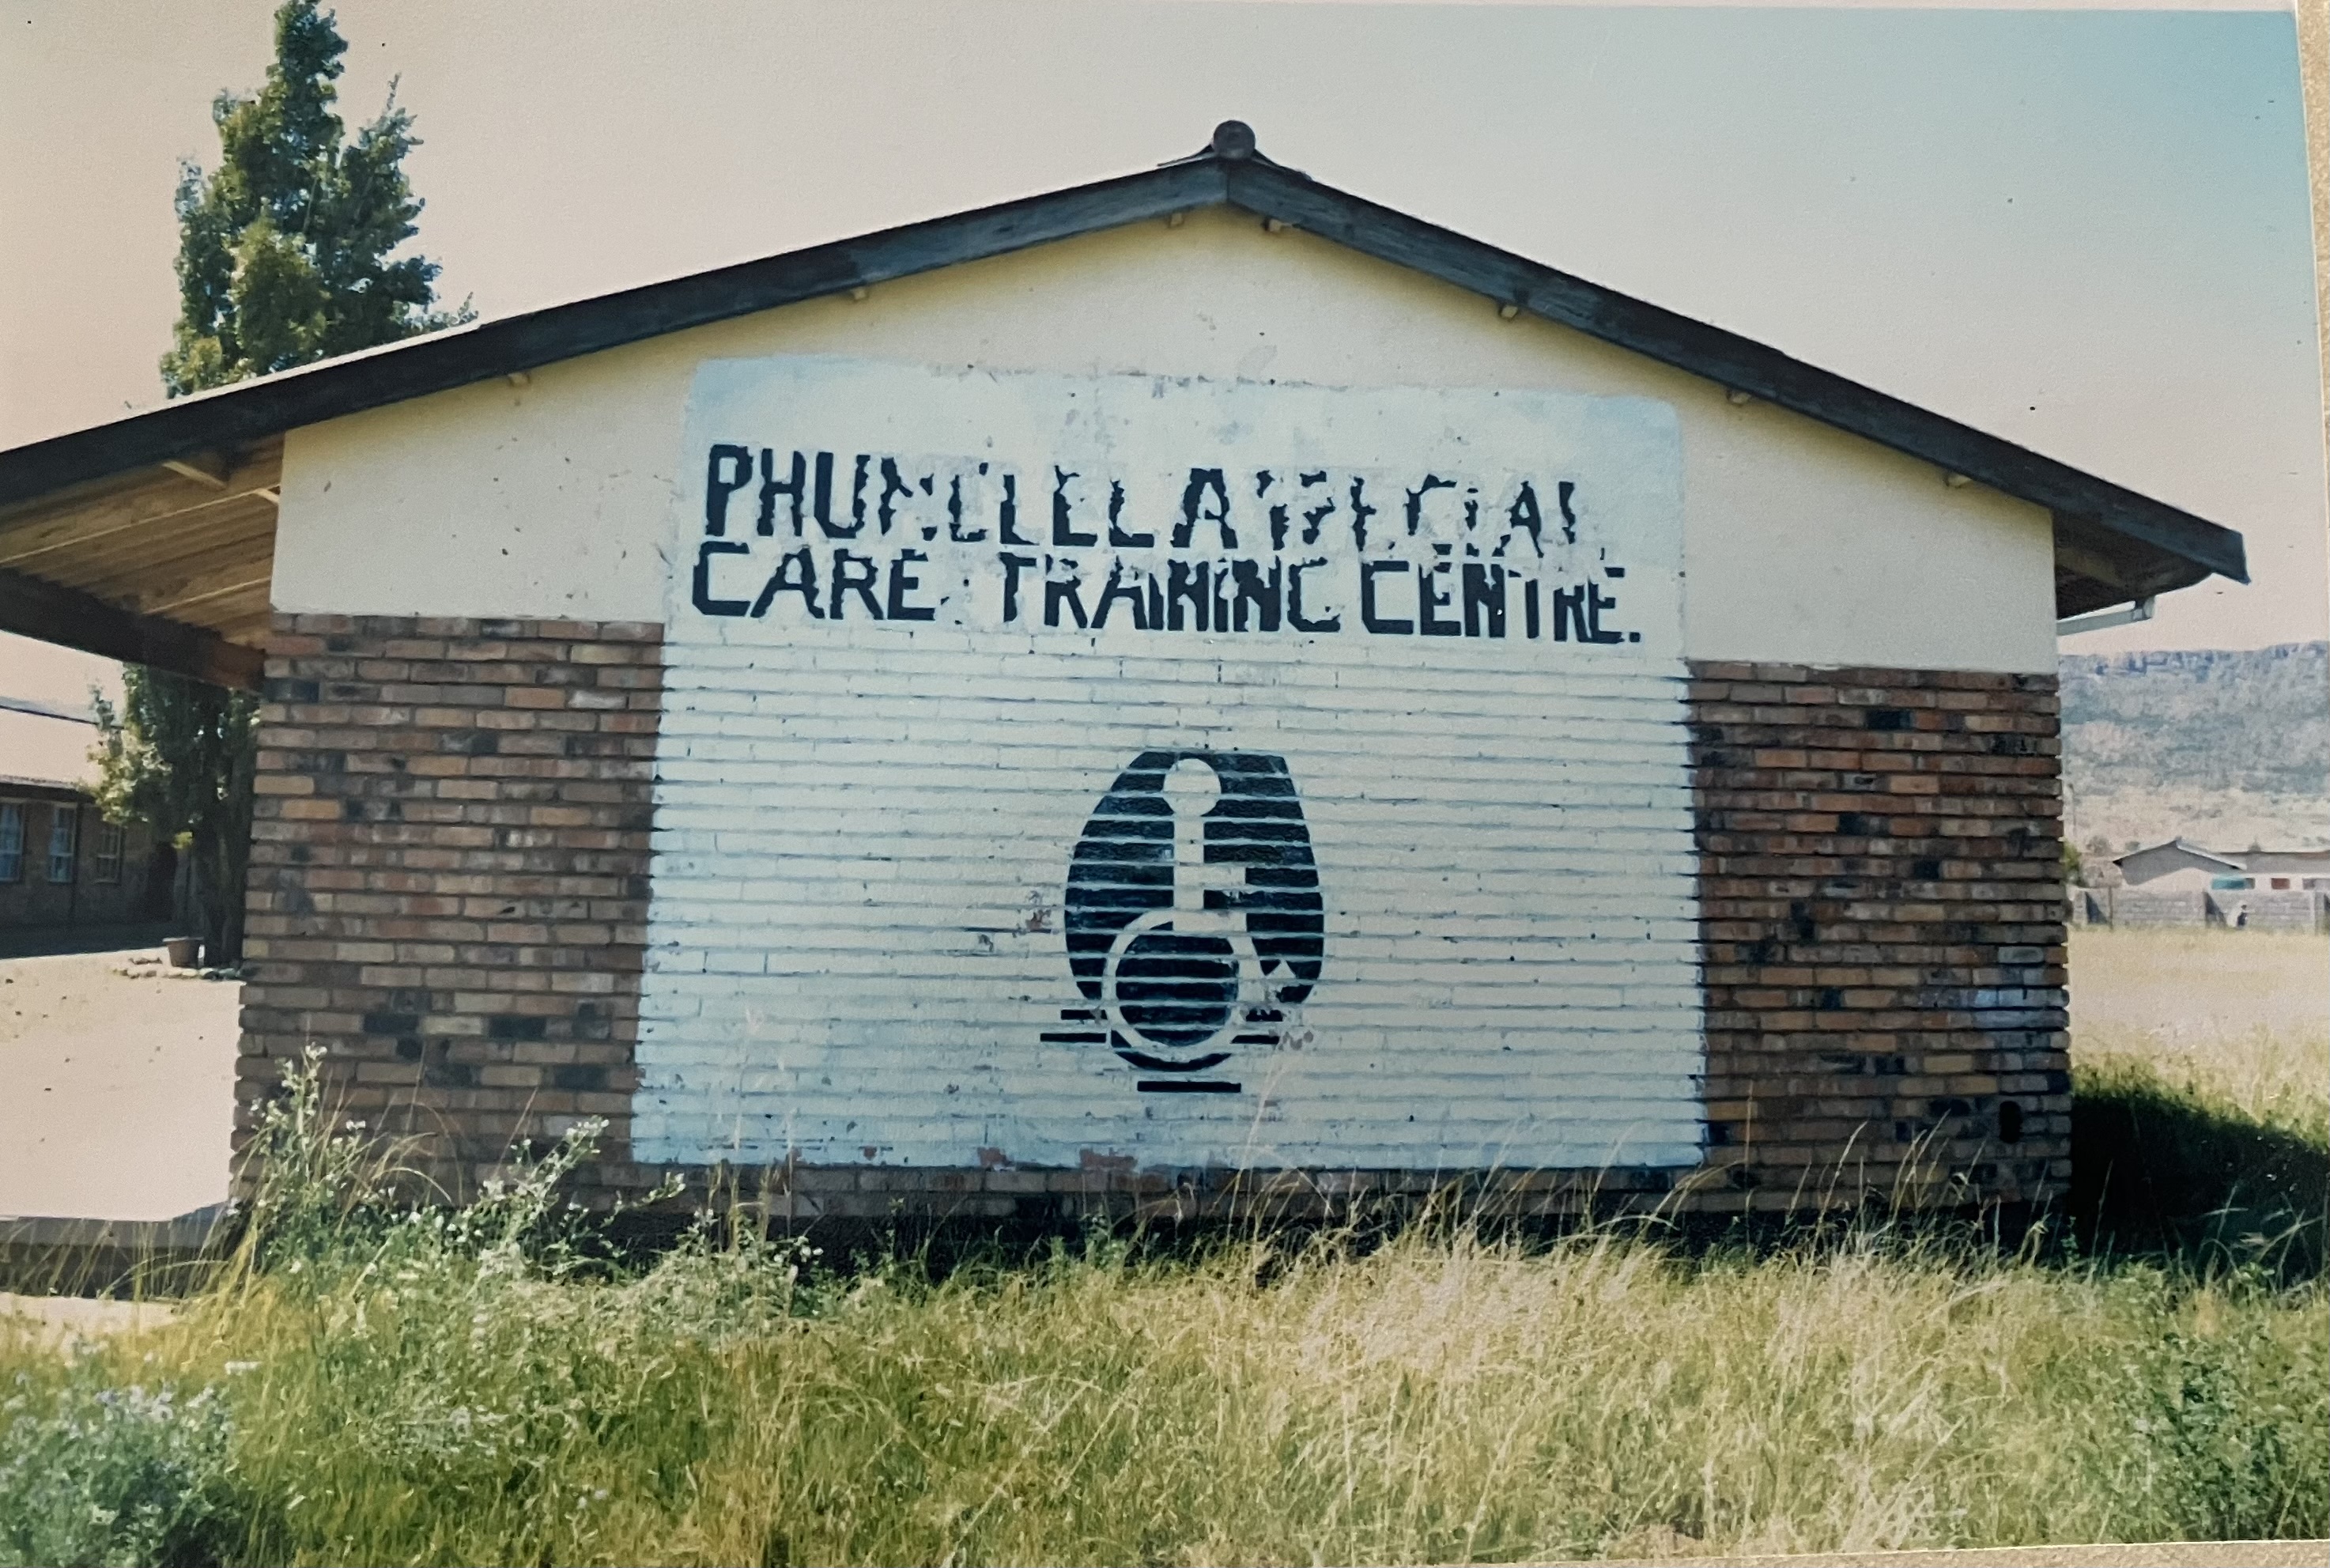 PHUMELELA SPECIAL
CARE TRAINING CENTRE.